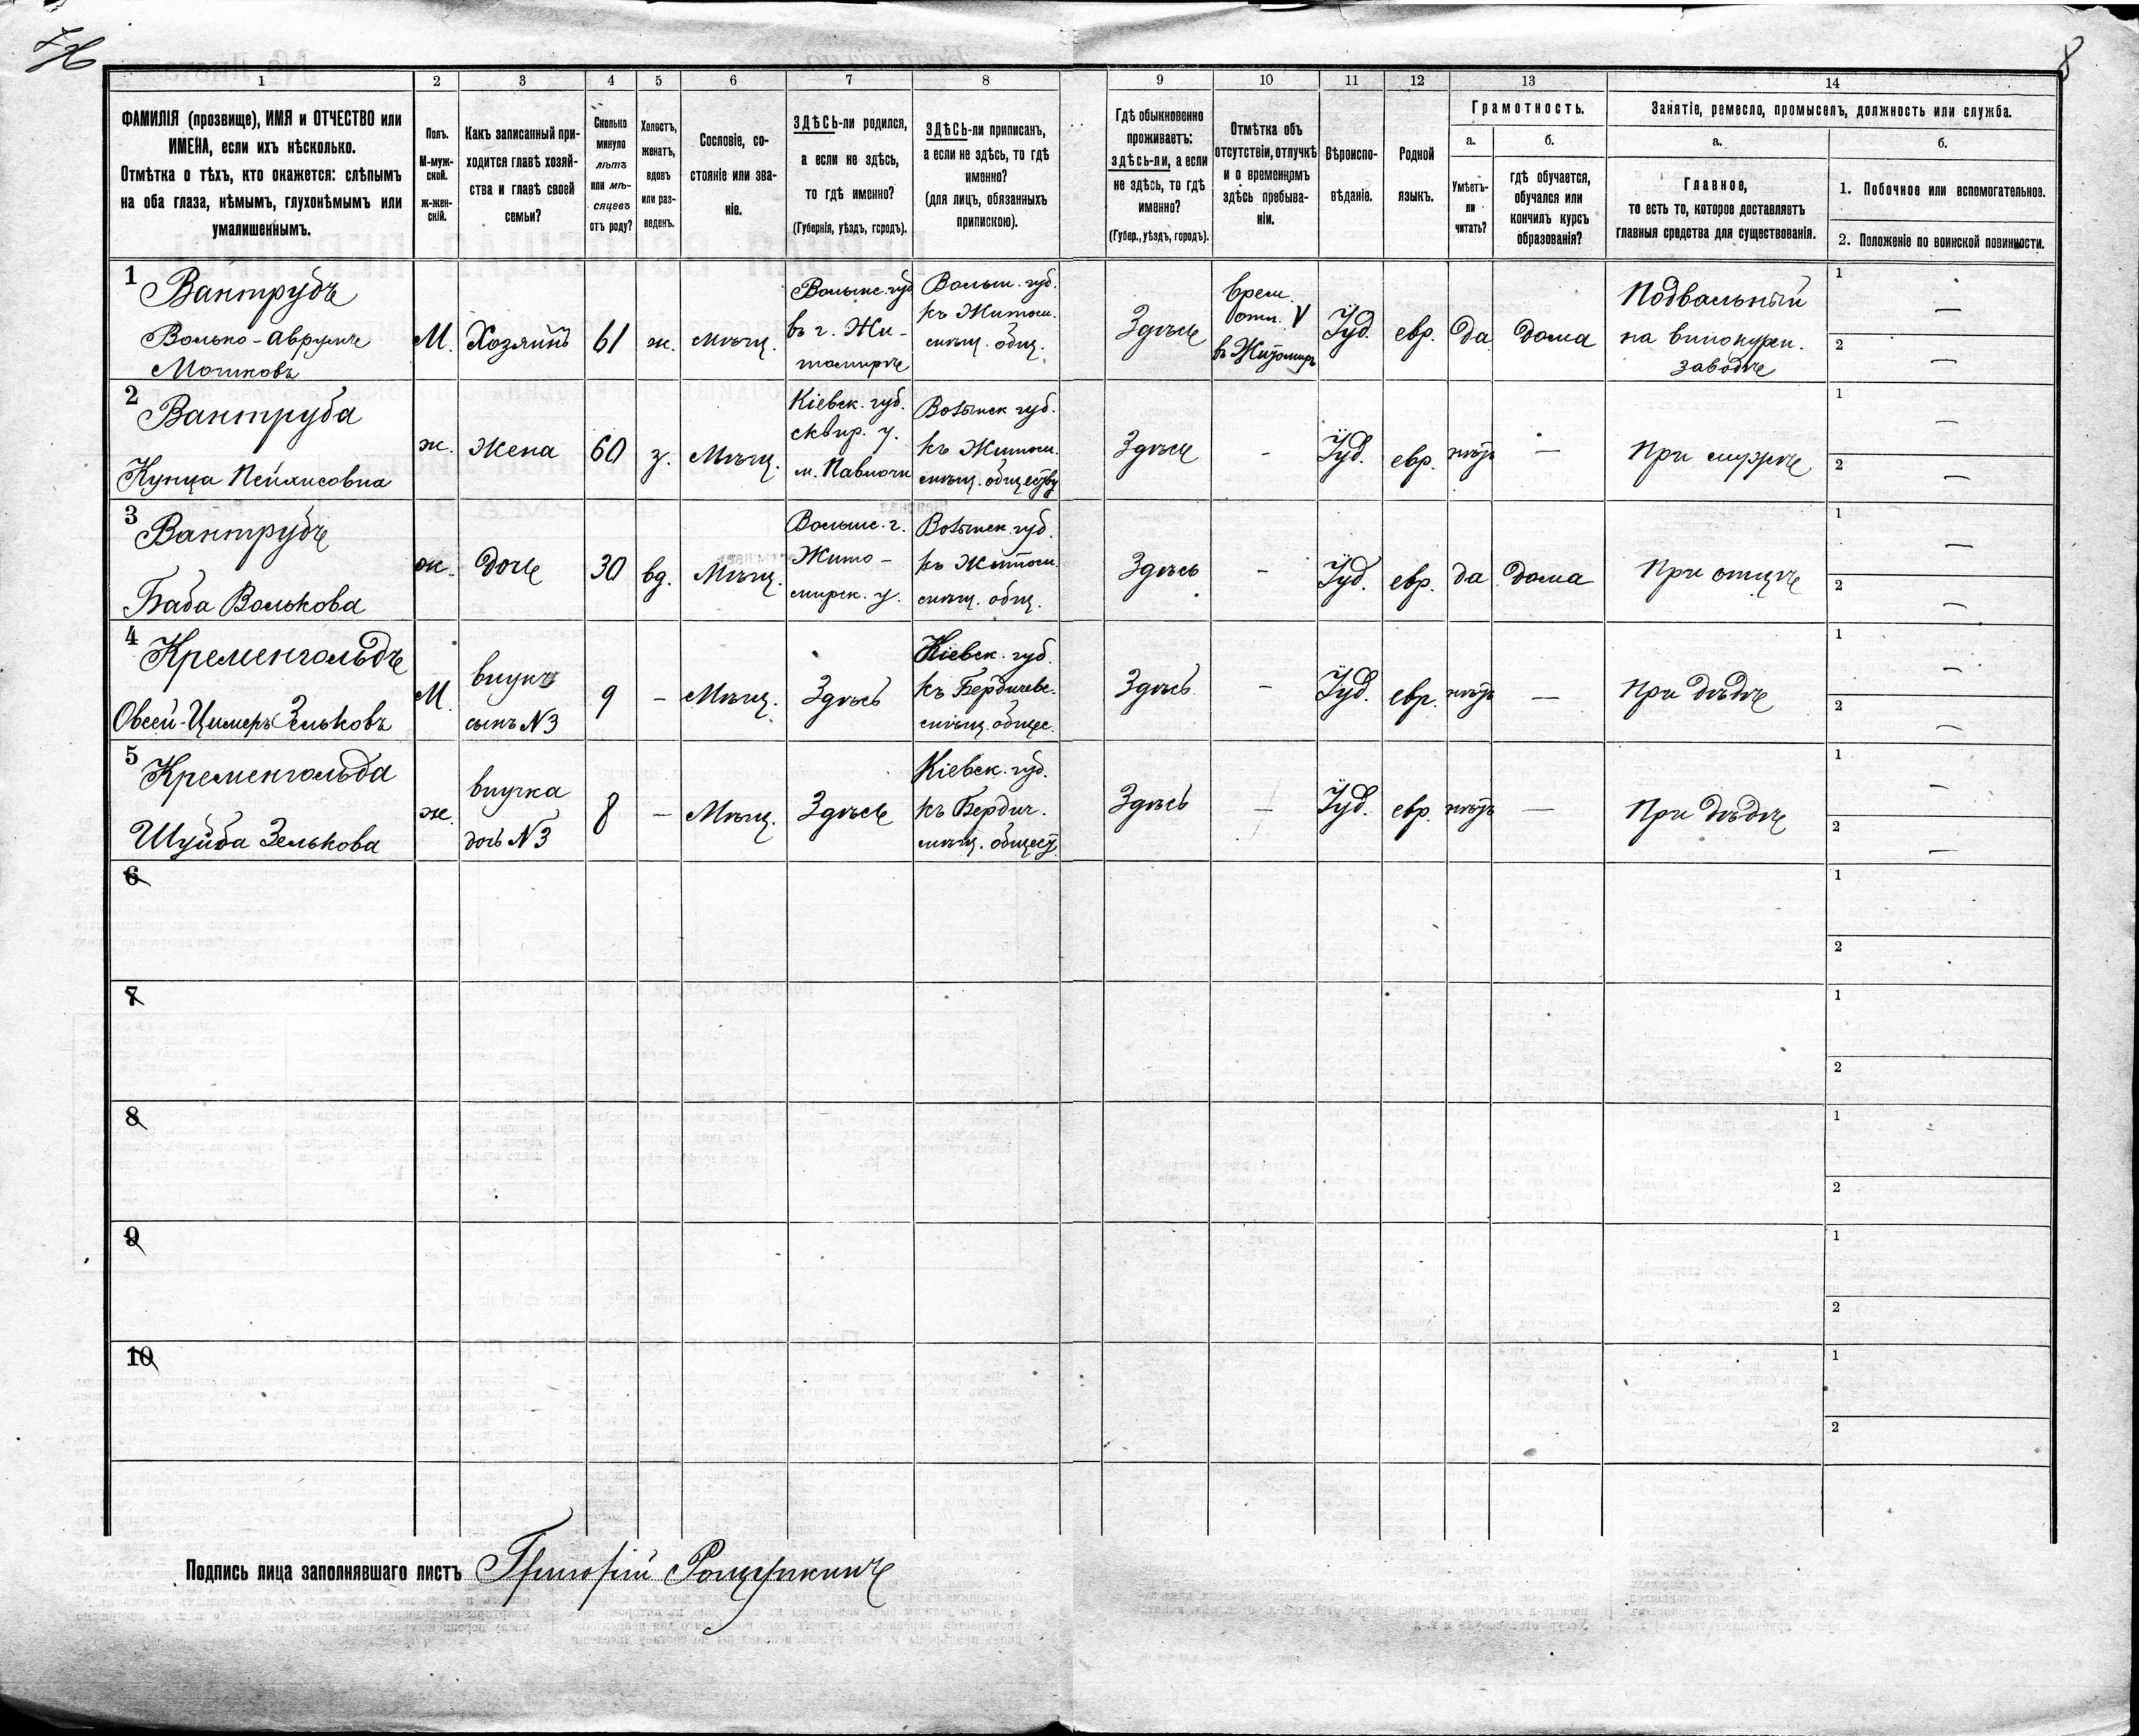 1 2 3 4 5 6 7 8 9 10 11 12 13 14
ФАМИЛІЯ (прозвище), ИМЯ и ОТЧЕСТВО или
ИМЕНА, если ихъ нѣсколько.
Отмѣтка о тѣхъ, кто окажется: слѣпымъ
на оба глаза, нѣмымъ, глухонѣмымъ или
умалишеннымъ.
Полъ.
М-муж-
ской.
ж-жен-
скій.
Какъ записанный при-
ходится главѣ хозяй-
ства и главѣ своей
семьи?
Сколько
минуло
лѣтъ
или мѣ-
сяцевъ
отъ роду?
Холостъ,
женатъ,
вдовъ
или раз-
веденъ.
Сословіе, со-
стояніе или зва-
ніе.
ЗДѢСЬ-ли родился,
а если не здѣсь,
то гдѣ именно?
(Губернія, уѣздъ, городъ).
ЗДѢСЬ-ли приписанъ,
а если не здѣсь, то гдѣ
именно?
(для лицъ, обязанныхъ
припискою).
Гдѣ обыкновенно
проживаетъ:
здѣсь-ли, а если
не здѣсь, то гдѣ
именно?
(Губер., уѣздъ, городъ).
Отмѣтка объ
отсутствіи, отлучкѣ
и о временномъ
здѣсь пребыва-
ніи.
Вѣроиспо-
вѣданіе.
Родной
языкъ.
Грамотность.
а.
Умѣетъ-
ли
читать?
б.
гдѣ обучается,
обучался или
кончилъ курсъ
образованія?
Занятіе, ремесло, промыселъ, должность или служба.
а.
Главное,
то есть то, которое доставляетъ
главныя средства для существованія.
б.
1. Побочное или вспомогательное.
2. Положеніе по воинской повинности.
1
Вантрубъ
Волько-Аврумъ
Мошковъ
М.
Хозяинъ
61
ж.
мѣщ.
Волынс. губ
въ г. Жи-
томирѣ
Волын. губ.
къ Житом.
мѣщ. общ.
Здѣсь
врем.
отл. V
въ Житомиръ
Іуд.
евр.
да
дома
Подвальный
на винокурен.
заводѣ
1 —
2 —
2
Вантруба
Кунца Пейлисовна
ж.
Жена
60
з.
Мѣщ.
Кіевск. губ.
сквир. у.
м. Паволочи
Волынск губ.
къ Житом.
мѣщ. обществу
Здѣсь
-
Іуд.
евр.
нѣтъ
—
При мужѣ
1 —
2 —
3
Вантрубъ
Баба Волькова
ж.
Дочь
30
вд.
Мѣщ.
Волынс. г.
Жито-
мирск. у.
Волынск. губ.
къ Житом.
мѣщ. общ.
Здѣсь
-
Іуд.
евр.
да
Дома
При отцѣ
1 —
2 —
4
Кременгольдъ
Овсей-Цимеръ Зельковъ
М.
внукъ
сынъ N3
9
-
Мѣщ.
Здѣсь
Кіевск. губ.
къ Бердичевс.
мѣщ. общес.
Здѣсь
-
Іуд.
евр.
нѣтъ
—
При дѣдѣ
1 —
2 —
5
Кременгольда
Шуйба Зелькова
ж.
внучка
дочь N3
8
—
Мѣщ.
Здѣсь
Кіевск. губ.
къ Бердич.
мѣщ. общест.
Здѣсь
—
Іуд.
евр.
нѣтъ
—
При дѣдѣ
1 —
2 —
6
1
2
7
1
2
8
1
2
9
1
2
10
1
2
Подпись лица заполнявшаго листъ Григорій